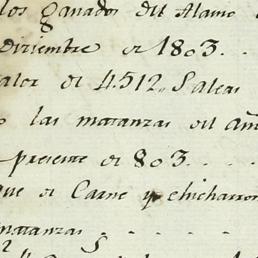 los ganados del Alamo
Diziembre de 1803..
valor de 4.512,,
las matanzas del
presente de 803.....
que de Carne y chicharron
matanzas